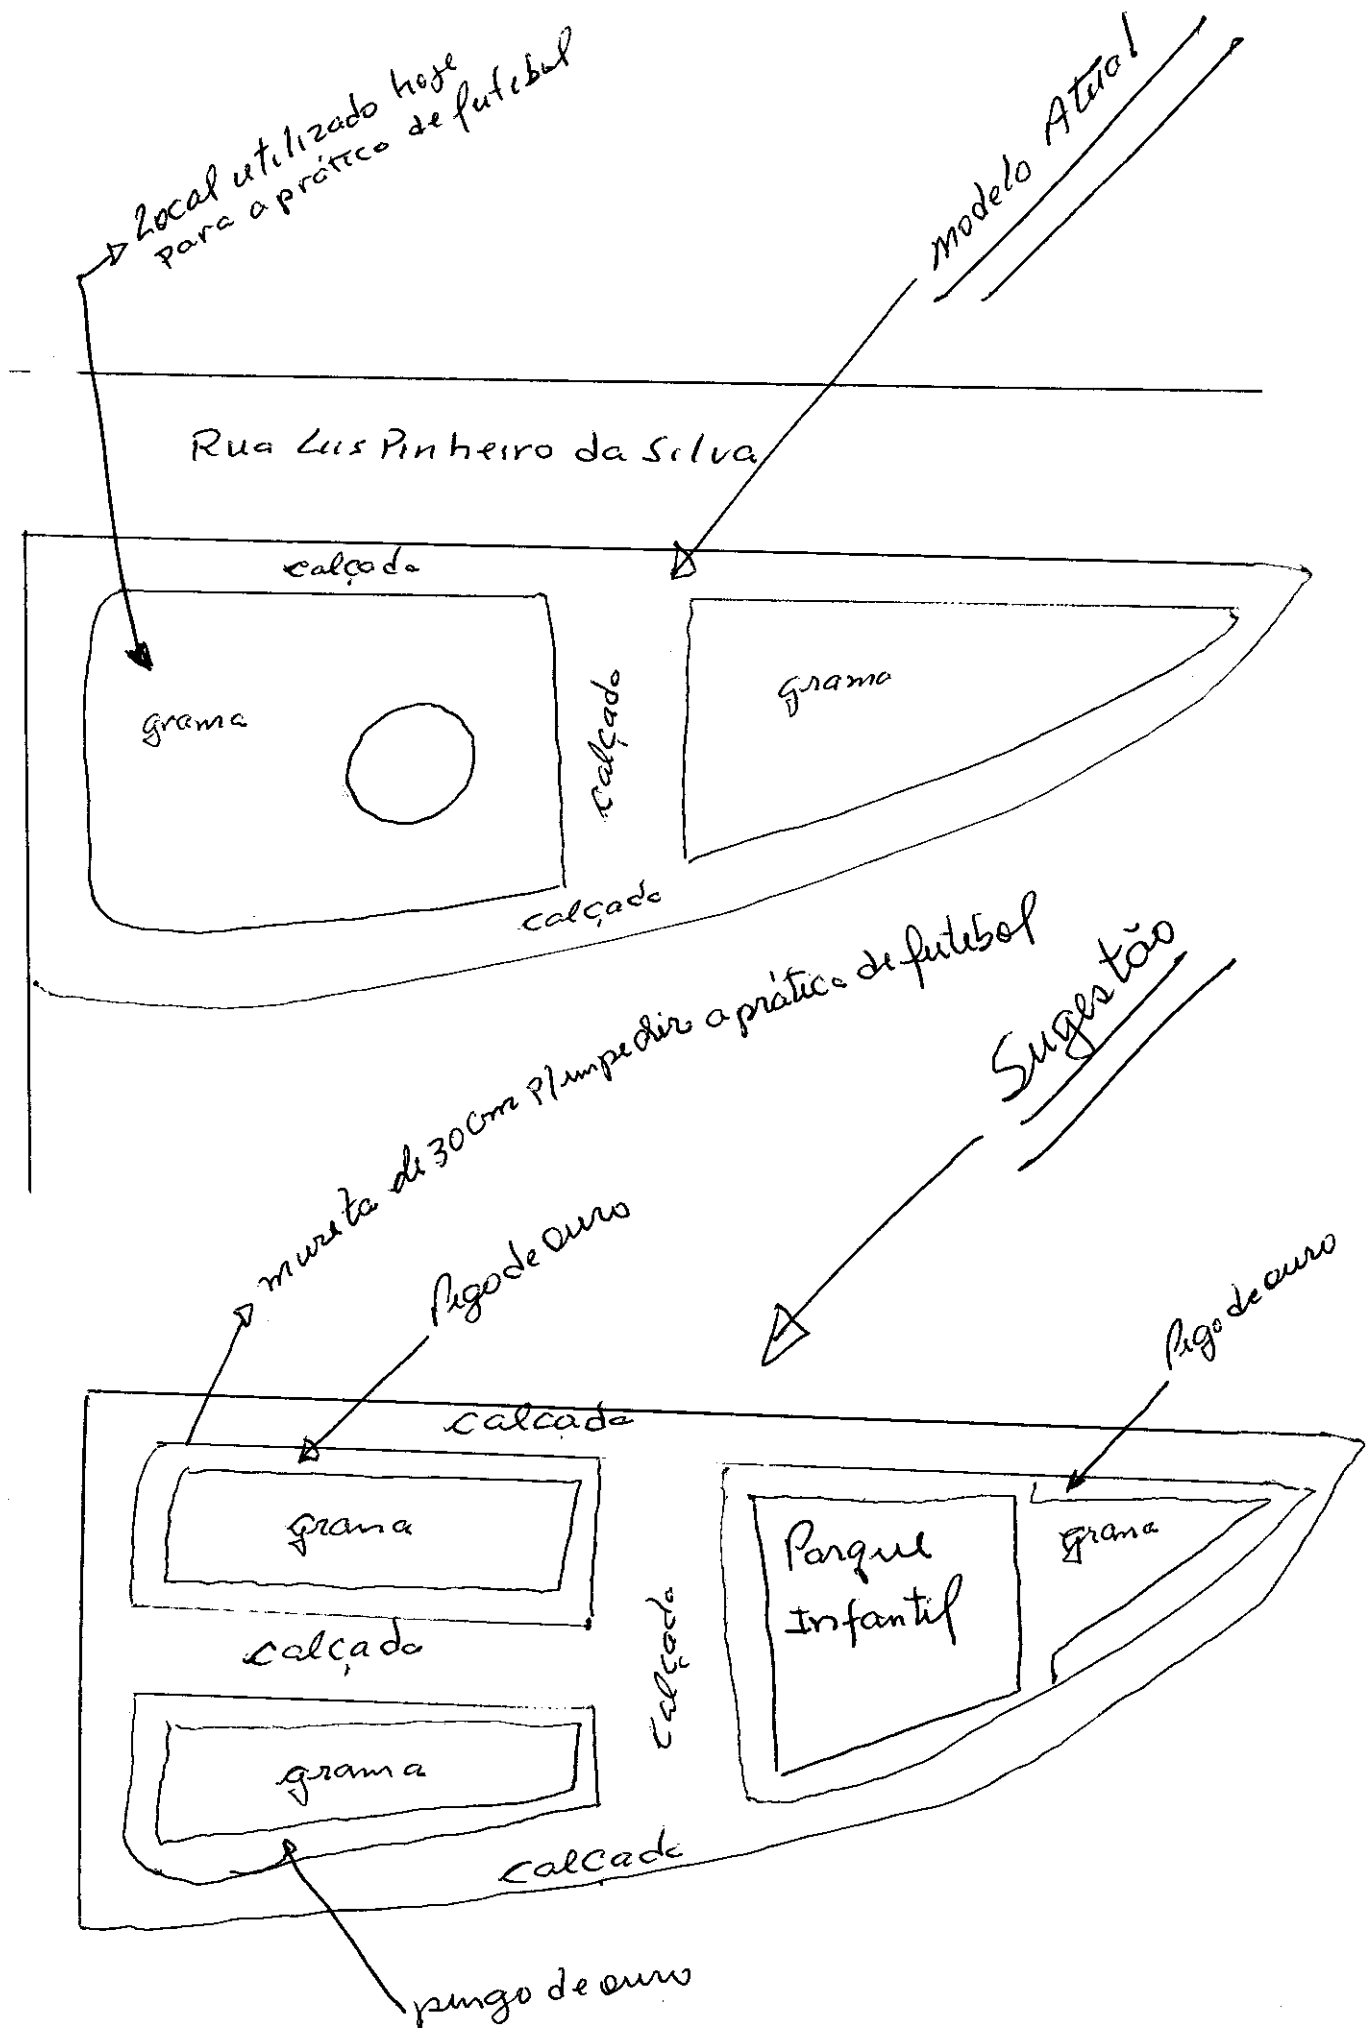 Local utilizado hoje
para a prática de futebol
modelo Atual
Rua Luis Pinheiro da Silva
calçada
grama
calçada
grama
calçada
mureta de 30cm p/ impedir a prática de futebol
Sugestão
Pigo de ouro
Pigo de ouro
calcada
grama
Parque
Infantil
grama
calçada
calçada
grama
calcada
pingo de ouro